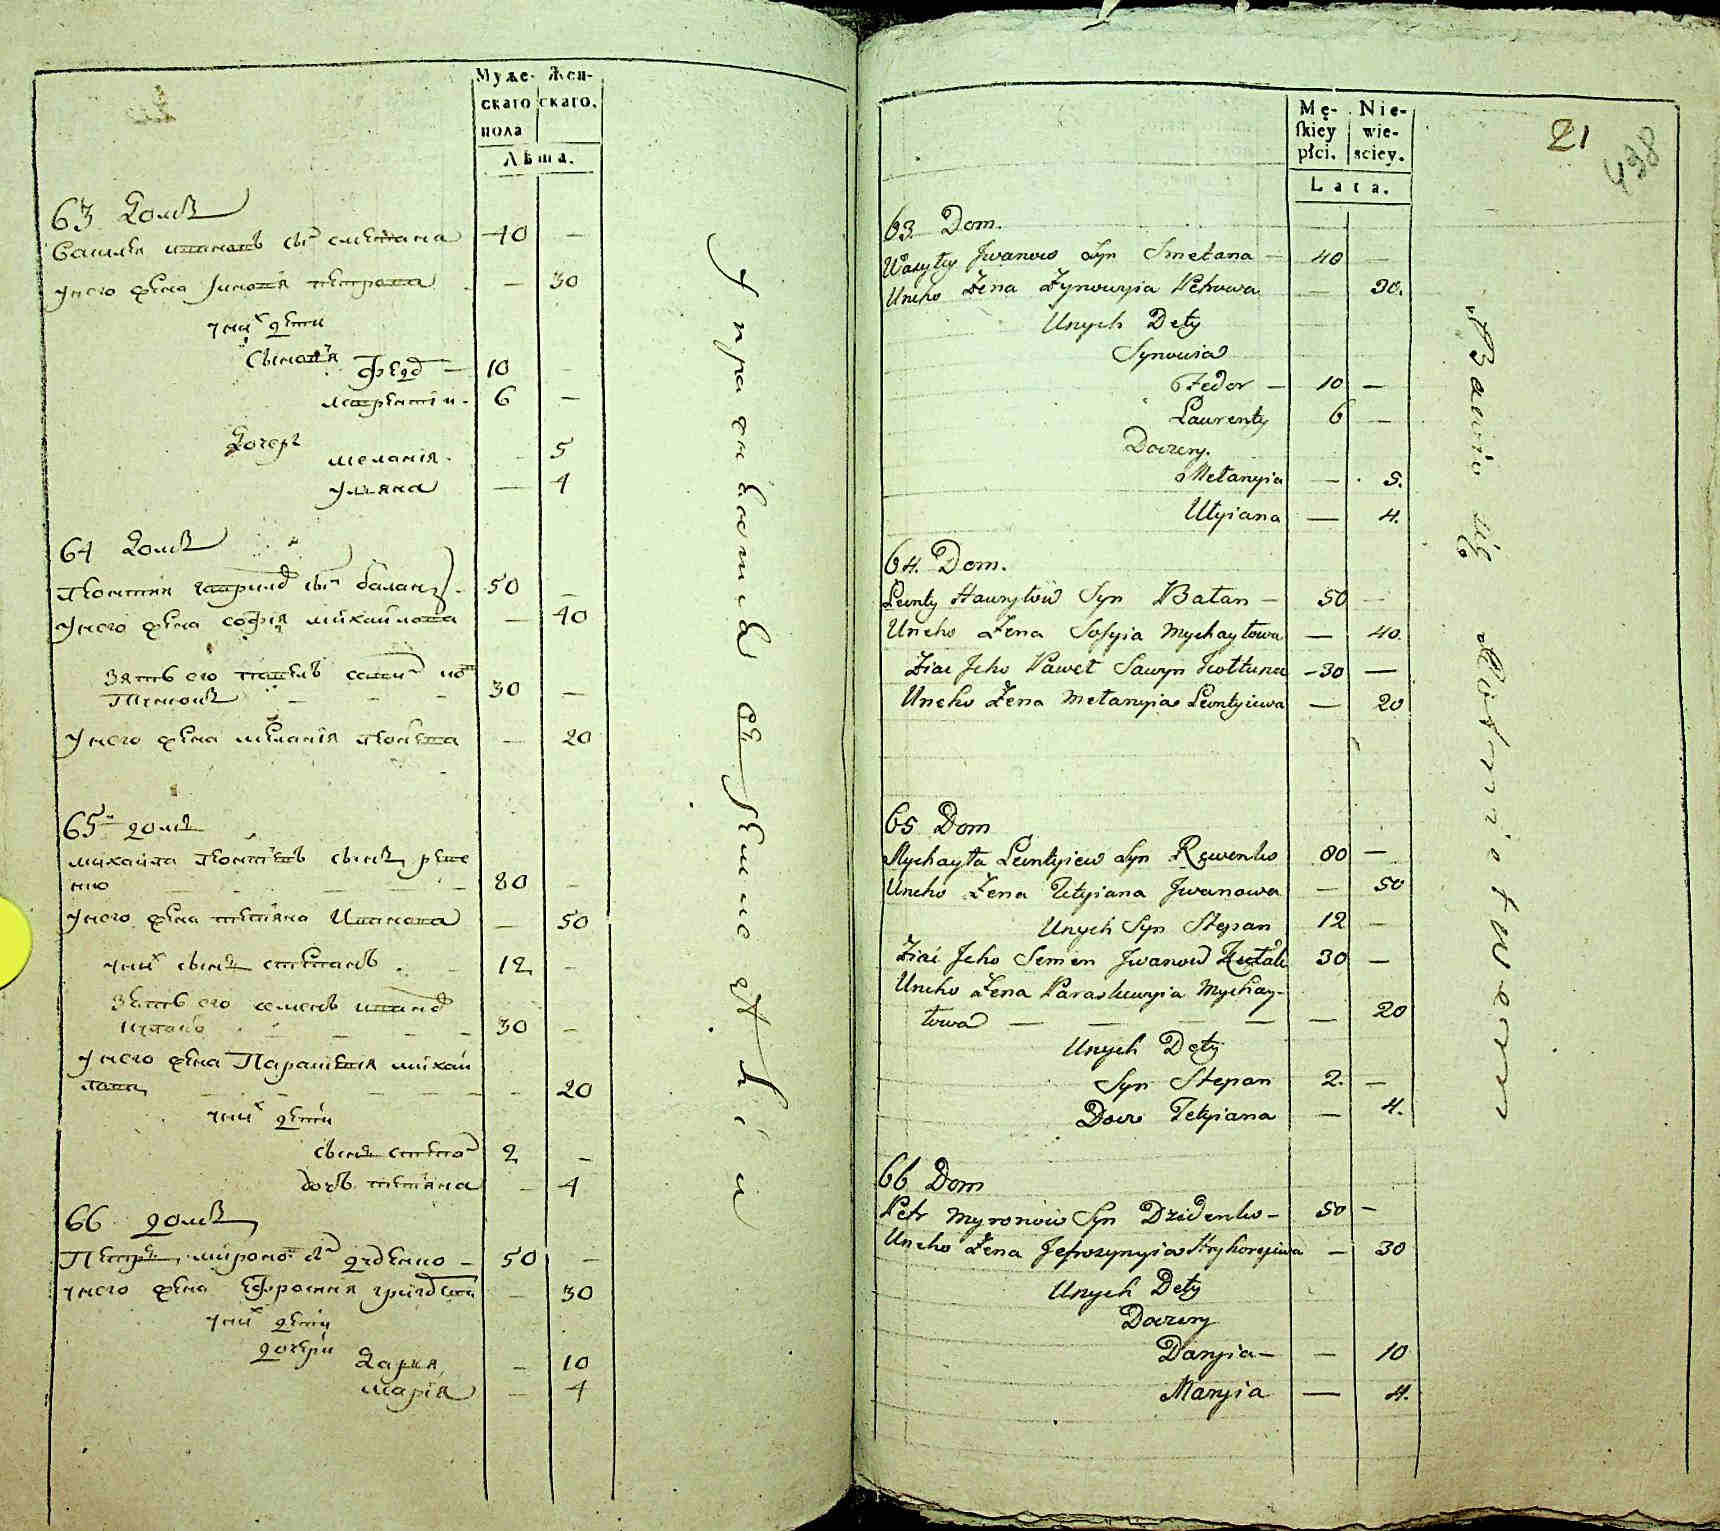 Муже- Жен-
скаго скаго.
пола
Лѣта.
63 Домъ
Василѣй Ивановъ сынъ сметана 40 —
Унего жена Зиновія петрова — 30
Уних дети
Сыновя
Федор — 10 —
Лаврентій 6 —
Дочери
Меланія — 5
Уляна — 4
64 Домъ
Леонтий гаврилов сын балан 50 —
Унего жена софія михайлова — 40
Зять его павелъ
30 —
Унего жена меланія леонтева — 20
65 домъ
михайла леонтевъ сынъ реве
нко 80 —
Унего жена тетяна Иванова — 50
Уних сынъ степанъ 12 —
Зять его семенъ иванов
30 —
Унего жена Парасковия михай
лова — 20
Уних дети
сынъ степан 2 —
дочь тетяна — 4
66 домъ
Петръ миронов сын диденко — 50 —
Унего жена Ефросиния григорева — 30
Уних дети
дочери
Дария — 10
Мария — 4
Mę- Nie-
ſkiey wie-
płci. sciey.
Lata.
21
438
63 Dom.
Wasyly Jwanow Syn Smetana — 40 —
Uneho Żena Zynowyia Petrowa — 30.
Unych Dety
Synowia
Fedor — 10 —
Laurenty 6 —
Doczery.
Mełanyia — 5.
Ulyiana — 4.
64. Dom.
Leonty Hawryłow Syn Bałan — 50 —
Uneho Żena Sofyia Mychayłowa — 40.
Ziat Jeho Paweł Sawyn — 30 —
Uneho Żena Mełanyia Leontyiewa — 20
65 Dom
Mychayła Leontyiew Syn Rewenko 80 —
Uneho Żena Tetyiana Jwanowa — 50
Unych Syn Stepan 12 —
Ziat Jeho Semen Jwanow 30 —
Uneho Żena Paraskewyia Mychay-
łowa — 20
Unych Dety
Syn Stepan 2. —
Docz Tetyiana — 4.
66 Dom
Petr Myronow Syn Dzidenko — 50 —
Uneho Żena Jefrozynyia Hryhoryiewa — 30
Unych Dety
Doczery
Daryia — — 10
Maryia — 4.